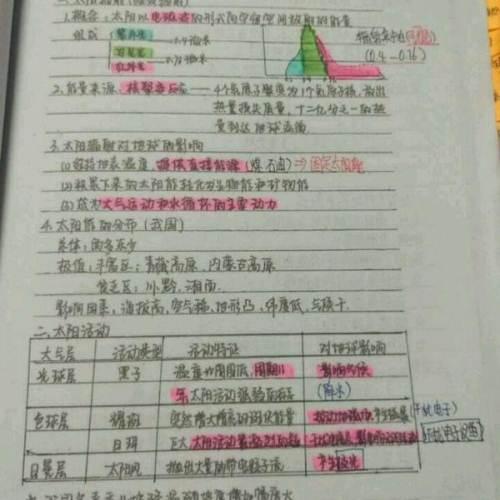 1.概念:太阳以电磁波的形式向宇宙空间放射的能量
组成 紫外光 0.4微米
可见光
红外光 0.76微米
(0.4-0.76)
2.能量来源:核聚变反应——4个氢原子聚变为1个氦原子核,放出
热量损失质量,十二亿分之一的热
量到达地球表面
3.太阳辐射对地球的影响
(1)维持地表温度,提供直接能源(煤.石油)⇒固定太阳能
(2)积累下来的太阳能转化为生物能和矿物能
(3)成为大气运动和水循环的主要动力
4.太阳能的分布(我国)
总体:西多东少
极值:丰富区:青藏高原、内蒙古高原
贫乏区:川黔、湘南
影响因素:海拔高,空气稀,地形凸,纬度低,
二.太阳活动
大气层 活动类型 活动特征 对地球影响
光球层 黑子 温度比周围低,周期11 影响气候
年 太阳活动强弱标志 (降水)
色球层 耀斑 突然增大增亮的斑状能量 (干扰电子)
日珥 巨大 太阳活动最激烈的 (干扰电子设备)
日冕层 太阳风 抛出大量的带电粒子流 产生极光